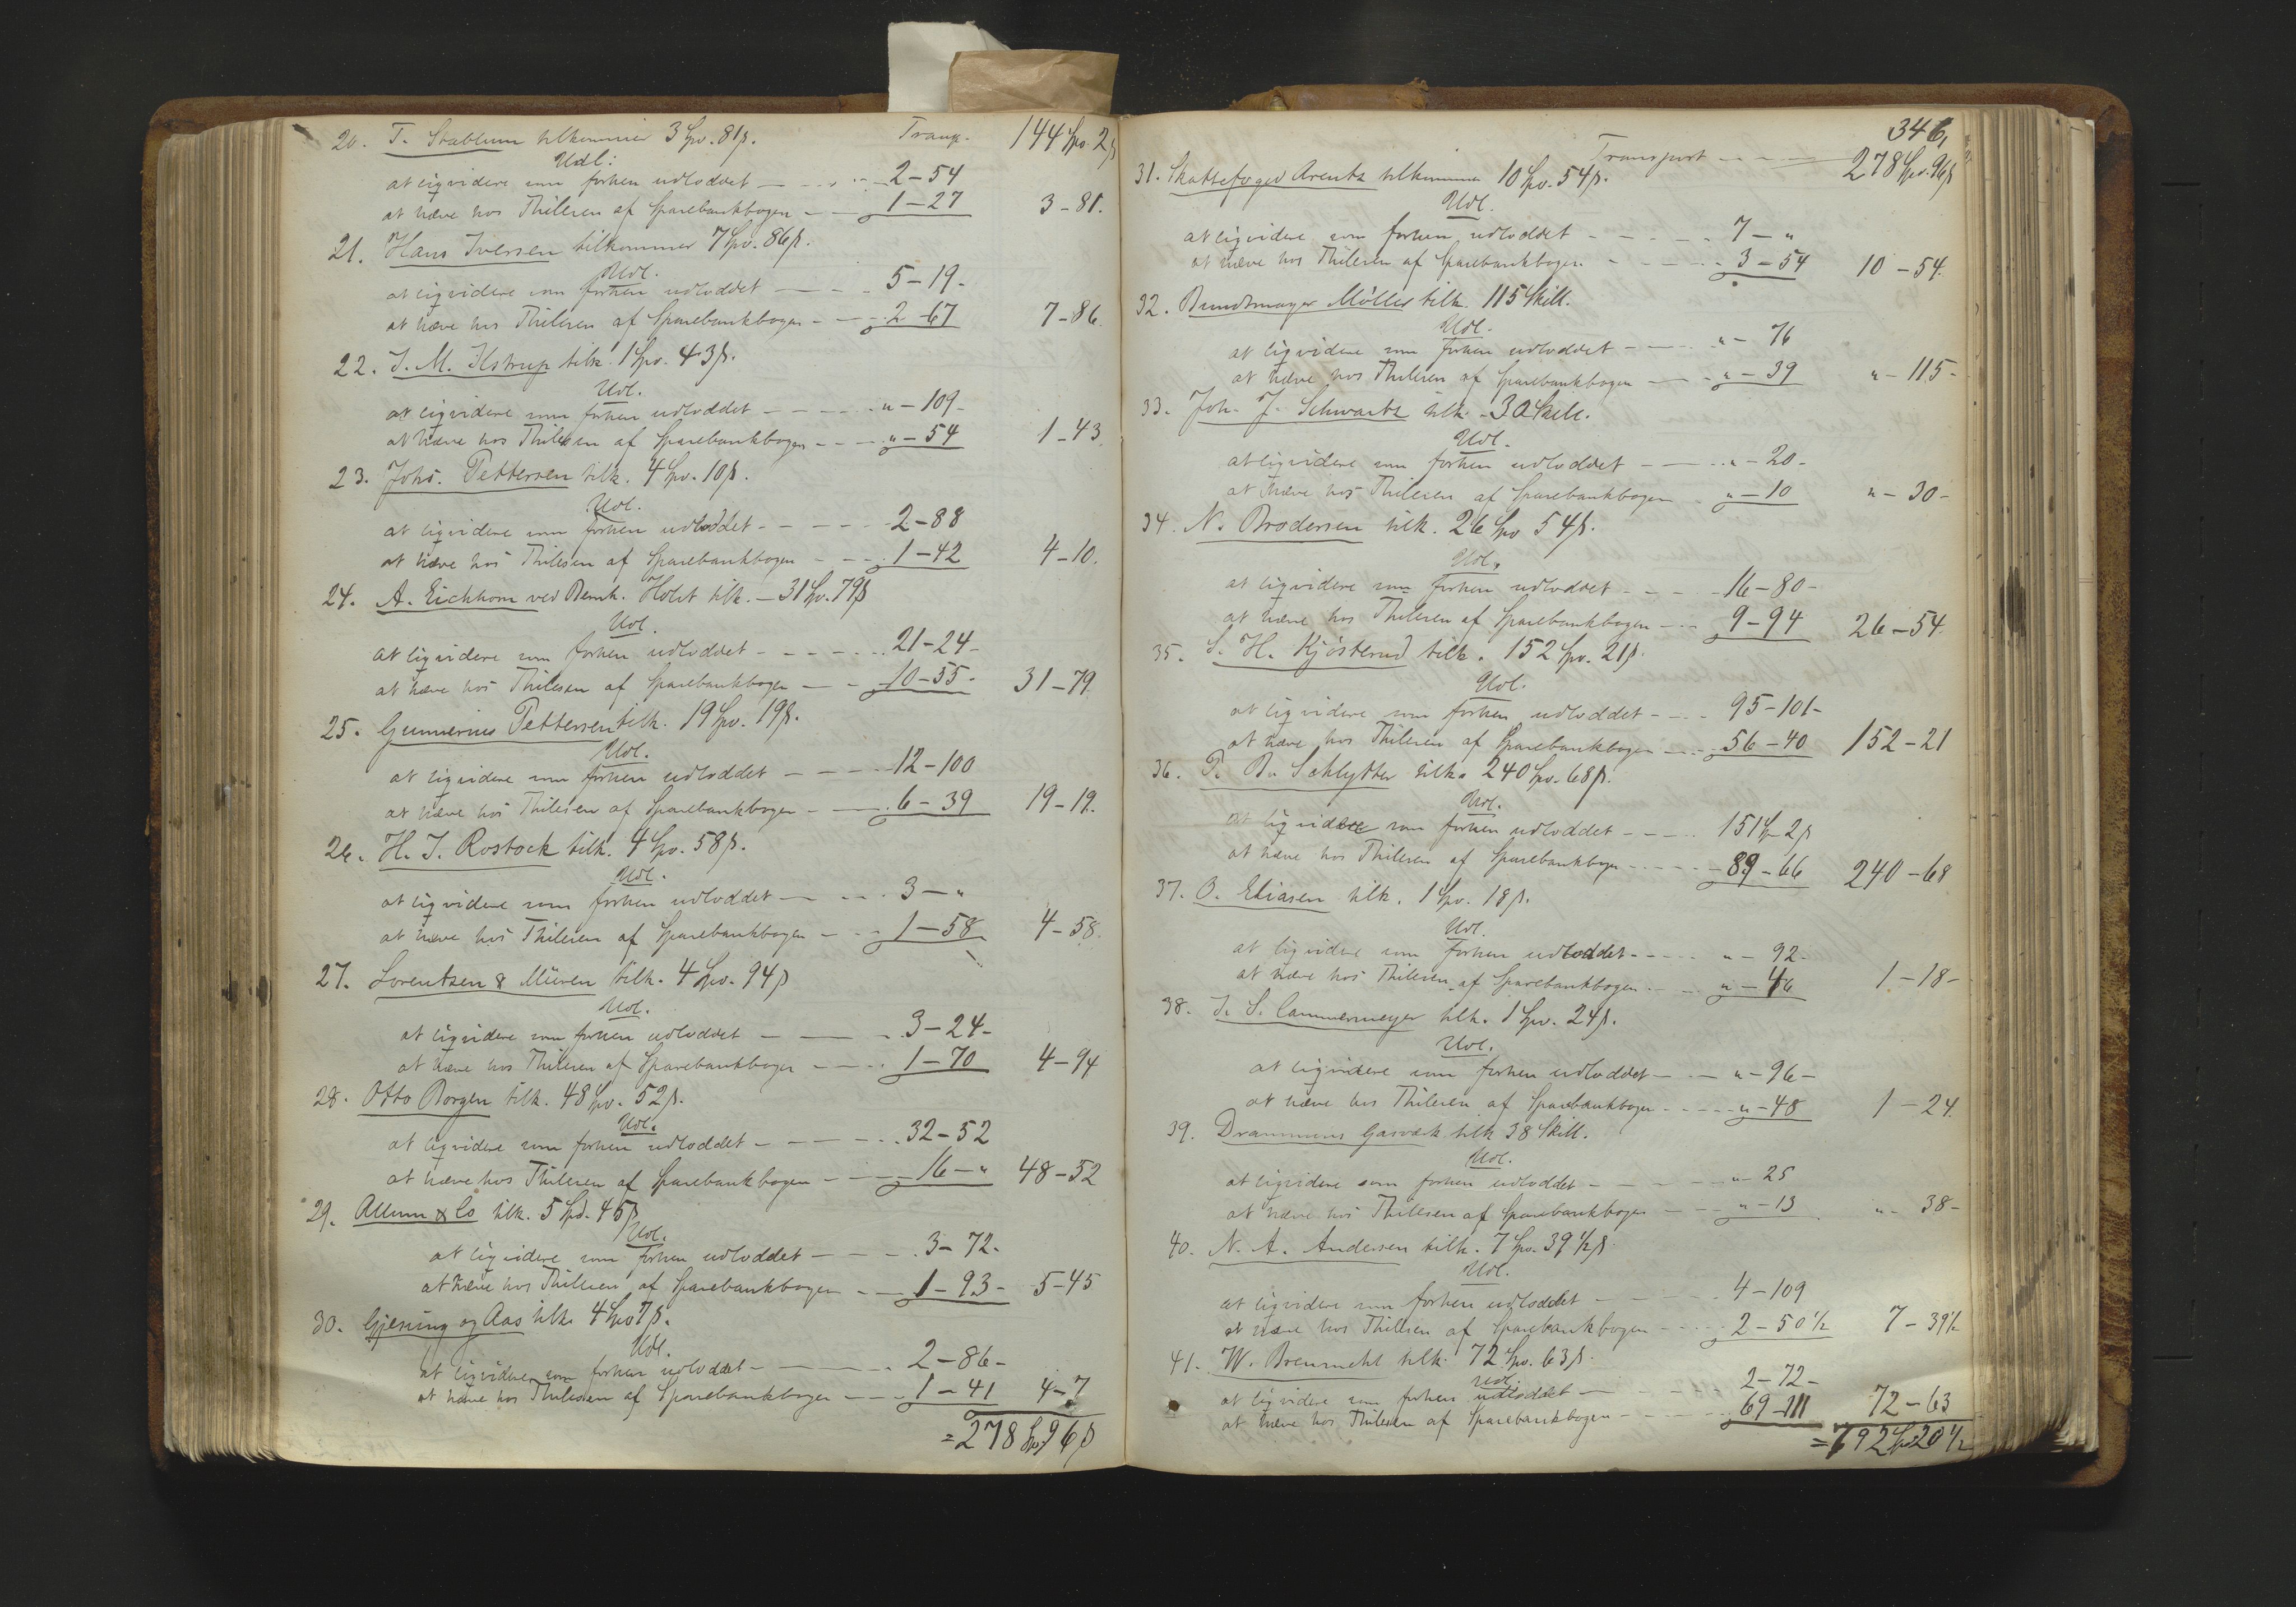 20. T. Stablum tilkommer 3 Spd. 81 s. Transp. 144 Spd. 2 s
Udl:
at liqvidere som forhen udloddet — 2 – 54
at hæve hos Thilesen af Sparebankbogen — 1 – 27 3 – 81.
21. Hans Iversen tilkommer 7 Spd. 86 s.
Udl.
at liqvidere som forhen udloddet — 5 – 19 –
at hæve hos Thilesen af Sparebankbogen — 2 – 67 7 – 86.
22. J. M. Ilstrup tilk. 1 Spd. 43 s.
Udl.
at liqvidere som forhen udloddet — " – 109 –
at hæve hos Thilesen af Sparebankbogen — " – 54 1 – 43.
23. Johs. Pettersen tilk. 4 Spd. 10 s.
Udl.
at liqvidere som forhen udloddet — 2 – 88
at hæve hos Thilesen af Sparebankbogen — 1 – 42 4 – 10.
24. A. Eichhorn ved Bernh. Holst tilk. – 31 Spd. 79 s
Udl.
at liqvidere som forhen udloddet — 21 – 24 –
at hæve hos Thilesen af Sparebankbogen — 10 – 55 – 31 – 79.
25. Gunnerius Pettersen tilk. 19 Spd. 19 s.
Udl.
at liqvidere som forhen udloddet — 12 – 100
at hæve hos Thilesen af Sparebankbogen — 6 – 39 19 – 19.
26. H. J. Rostock tilk. 4 Spd. 58 s.
Udl.
at liqvidere som forhen udloddet — 3 – "
at hæve hos Thilesen af Sparebankbogen — 1 – 58 4 – 58.
27. Lorentzen & Müren tilk. 4 Spd. 94 s
Udl.
at liqvidere som forhen udloddet — 3 – 24 –
at hæve hos Thilesen af Sparebankbogen — 1 – 70 4 – 94
28. Otto Borgen tilk. 48 Spd. 52 s.
Udl.
at liqvidere som forhen udloddet — 32 – 52
at hæve hos Thilesen af Sparebankbogen — 16 – " 48 – 52
29. Allum & Co tilk. 5 Spd. 45 s
Udl.
at liqvidere som forhen udloddet — 3 – 72 –
at hæve hos Thilesen af Sparebankbogen — 1 – 93 – 5 – 45
30. Gjesing og Aas tilk. 4 Spd 7 s.
Udl.
at liqvidere som forhen udloddet — 2 – 86 –
at hæve hos Thilesen af Sparebankbogen — 1 – 41 4 – 7
= 278 Spd 96 s
346,
Transport — 278 Spd. 96 s
31. Skattefoged Arentz tilkommer 10 Spd. 54 s.
Udl.
at liqvidere som forhen udloddet — 7 – "
at hæve hos Thilesen af Sparebankbogen — 3 – 54 10 – 54.
32. Bundtmager Möller tilk. 115 Skill.
Udl.
at liqvidere som forhen udloddet — " – 76
at hæve hos Thilesen af Sparebankbogen — " – 39 " – 115 –
33. Joh. J. Schwartz tilk. – 30 Skill.
Udl.
at liqvidere som forhen udloddet — " – 20 –
at hæve hos Thilesen af Sparebankbogen — " – 10 " – 30 –
34. N. Brodersen tilk. 26 Spd 54 s.
Udl.
at liqvidere som forhen udloddet — 16 – 80 –
at hæve hos Thilesen af Sparebankbogen — 9 – 94 26 – 54.
35. S. H. Kjösterud tilk. 152 Spd. 21 s.
Udl.
at liqvidere som forhen udloddet — 95 – 101 –
at hæve hos Thilesen af Sparebankbogen — 56 – 40 152 – 21
36. P. B. Schlytter tilk. 240 Spd. 68 s.
Udl.
at liqvidere som forhen udloddet — 151 Sp 2 s
at hæve hos Thilesen af Sparebankbogen — 89 – 66 240 – 68
37. O. Eliasen tilk. 1 Spd. 18 s.
Udl.
at liqvidere som forhen udloddet — " – 92 –
at hæve hos Thilesen af Sparebankbogen — " – 46 1 – 18 –
38. J. S. Cammermeyer tilk. 1 Spd. 24 s.
Udl.
at liqvidere som forhen udloddet — " – 96 –
at hæve hos Thilesen af Sparebankbogen — " – 48 1 – 24.
39. Drammens Gasværk tilk 38 Skill.
Udl.
at liqvidere som forhen udloddet — " – 25
at hæve hos Thilesen af Sparebankbogen — " – 13 " – 38 –
40. N. A. Andersen tilk. 7 Spd. 39 1/2 s.
Udl.
at liqvidere som forhen udloddet — 4 – 109
at hæve hos Thilesen af Sparebankbogen — 2 – 50 1/2 7 – 39 1/2
41. W. Breumehl tilk. 72 Spd. 63 s.
Udl.
at liqvidere som forhen udloddet — 2 – 72 –
at hæve hos Thilesen af Sparebankbogen — 69 – 111 72 – 63
= 792 Spd 20 1/2